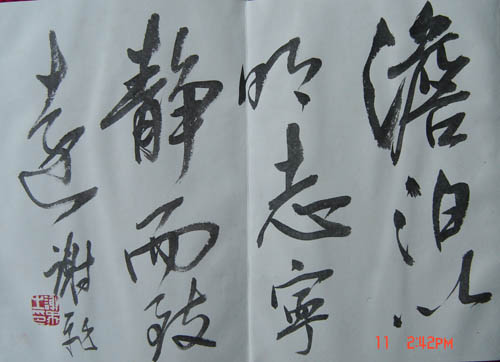 澹泊以
明志寧
静而致
遠
谢
11 2:42PM